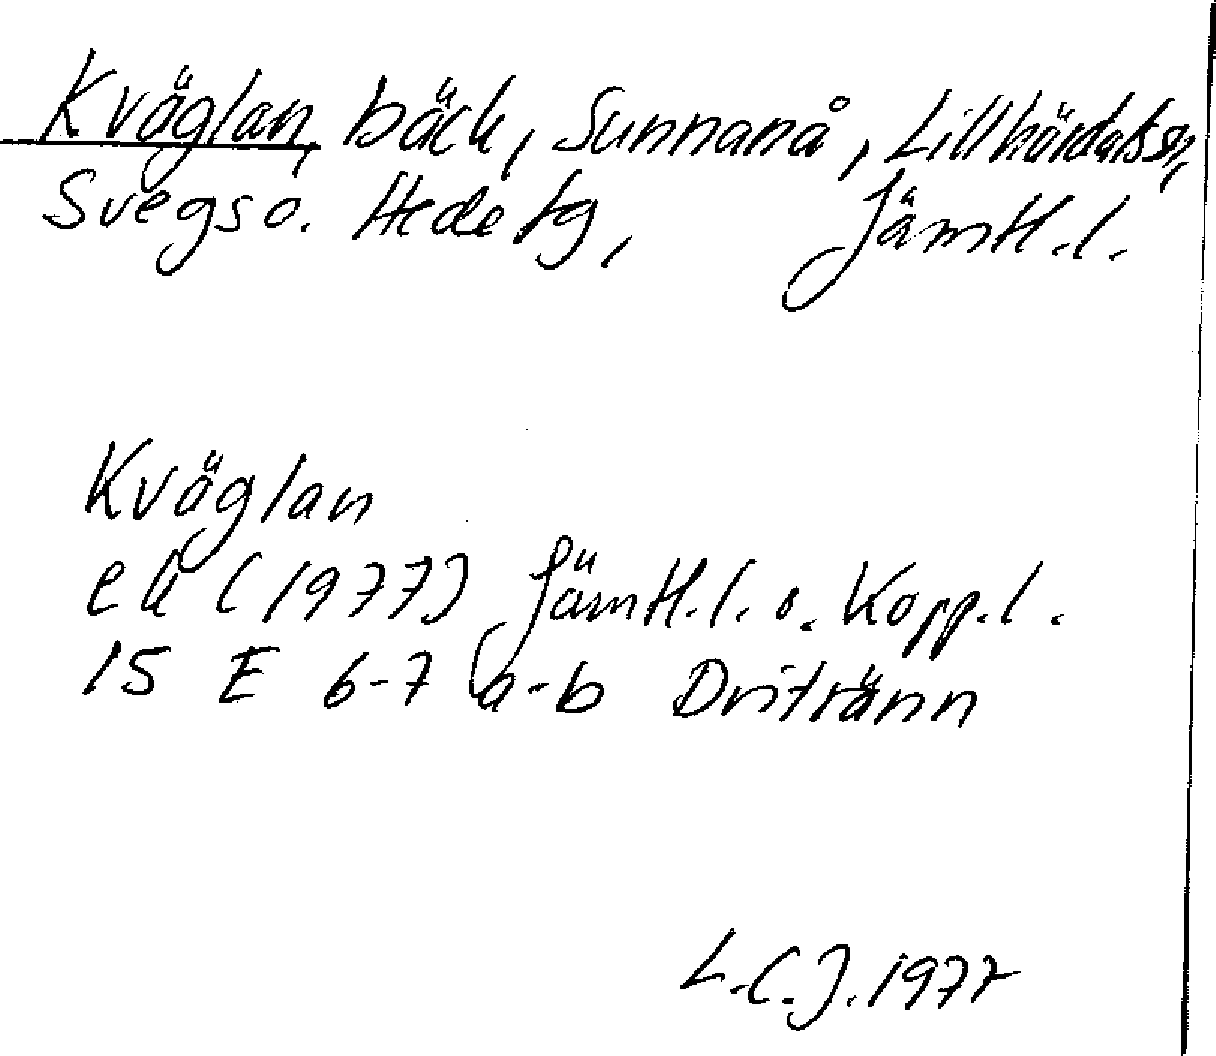 Kväglan, bäck, Sunnanå, Lillhärdals sn,
Svegs o. Hede tg, Jämtl.l.
Kväglan
ek (1977) Jämtl.l. o. Kopp.l.
15 E 6-7 a-b Dritränn
L.C.J. 1977